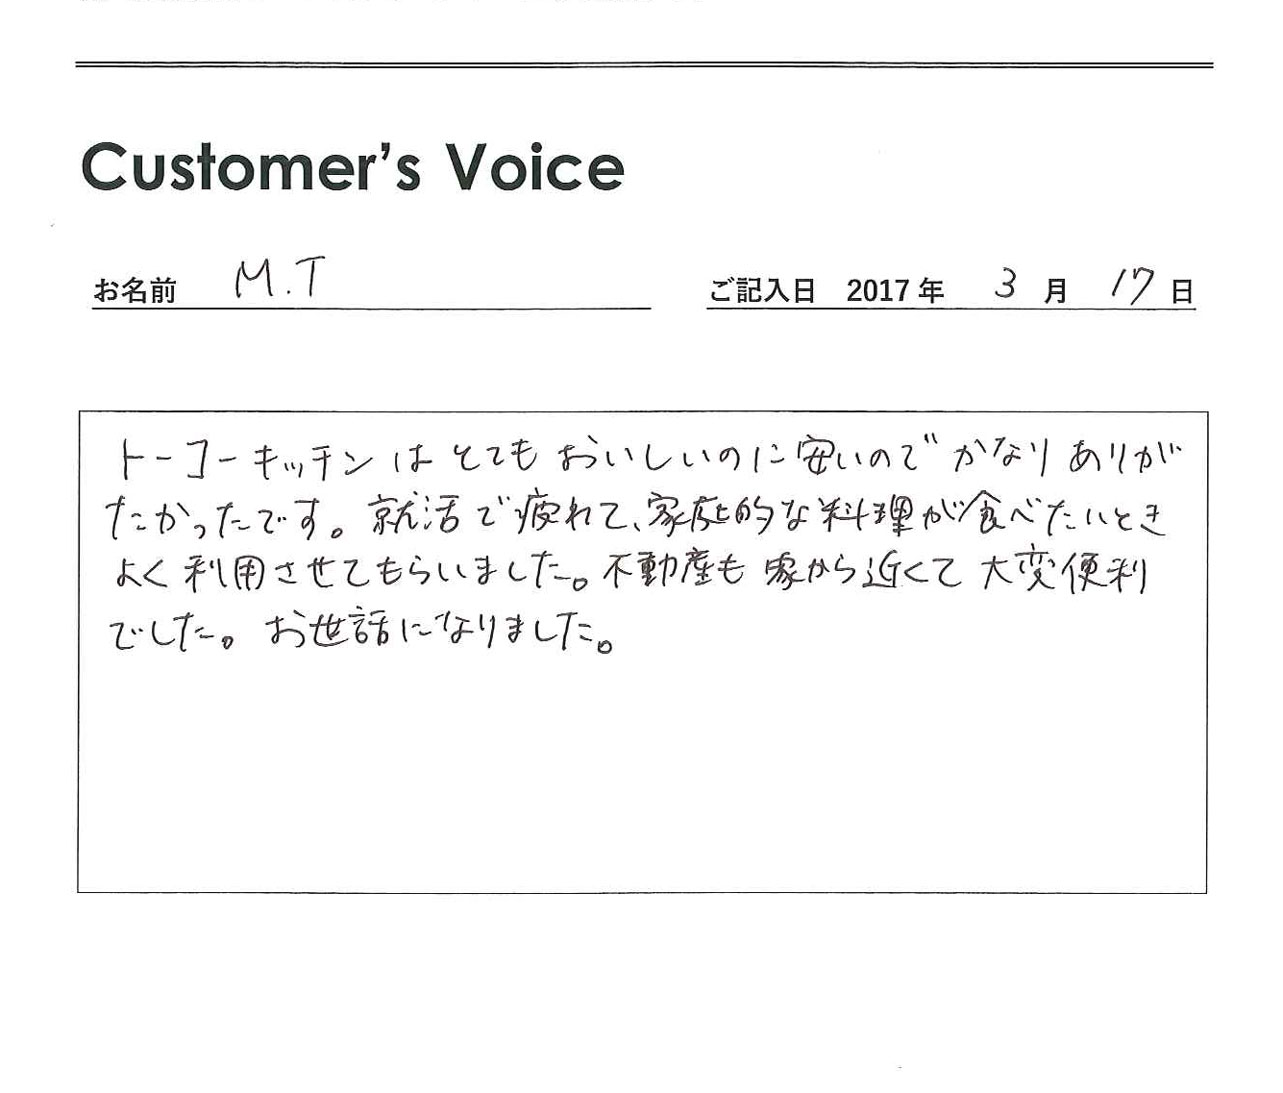 Customer's Voice
お名前 M.T
ご記入日 2017年 3月 17日
トーコーキッチンはとてもおいしいのに安いのでかなりありが
たかったです。就活で疲れて、家庭的な料理が食べたいとき
よく利用させてもらいました。不動産も家から近くて大変便利
でした。お世話になりました。